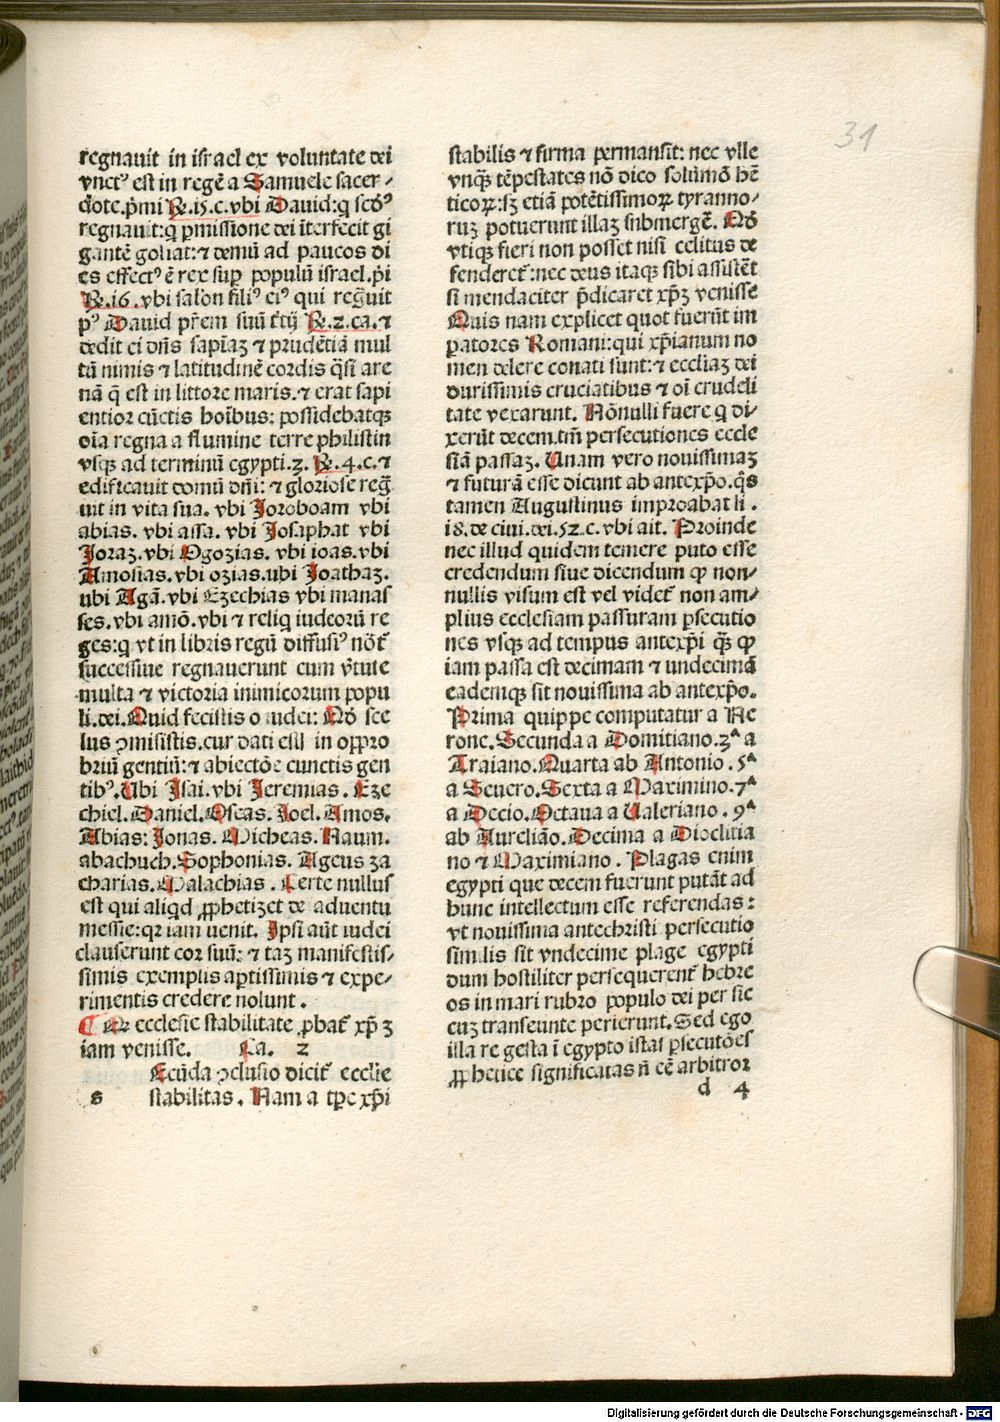 31
regnauit in israel ex voluntate dei
vnctꝰ est in regē a Samuele sacer-
dote.p̄mi R̷.15.c.vbi Dauid:q scd̄o
regnauit:q ꝑmissione dei īterfecit gi
gantē goliat:⁊ demū ad paucos di
es effectꝰ ē rex suꝑ populū israel.p̄i
R̷.16.vbi salōn filiꝰ eiꝰ qui regͥuit
pꝰ Dauid pr̄em suū t̄tij R̷.2.ca.⁊
dedit ei dn̄s sapīaꝫ ⁊ prudētiā mul
tū nimis ⁊ latitudinē cordis q̄si are
nā q̄ est in littore maris.⁊ erat sapi
entior cūctis hoībus: possidebatqꝫ
oīa regna a flumine terre philistin
vsqꝫ ad terminū egypti.3. R̷.4.c.⁊
edificauit domū dn̄i: ⁊ gloriose reg̅
uit in vita sua. vbi Joroboam vbi
abias. vbi assa. vbi Josaphat vbi
Joraꝫ.vbi Ogozias. vbi ioas.vbi
Amosias.vbi ozias.ubi Joathaꝫ.
ubi Agā.vbi Ezechias vbi manas
ses.vbi amō.vbi ⁊ reliq iudeorū re
ges:q vt in libris regū diffusiꝰ nōt̄
successiue regnauerunt cum v̄tute
multa ⁊ victoria inimicorum popu
li.dei.Quid fecistis o iudei: Nō sce
lus ꝯmisistis.cur dati estis in oppro
briū gentiū:⁊ abiectōe cunctis gen
tibꝰ.Ubi Jsai.vbi Jeremias. Eze
chiel.Daniel.Oseas. Joel. Amos.
Abias: Jonas. Micheas. Naum.
abachuch.Sophonias. Ageus za
charias.Malachias . Certe nullus
est qui aliqd ꝓphetizet de aduentu
messie:qr iam uenit. Jpsi aūt iudei
clauserunt cor suū: ⁊ taꝫ manifestis-
simis exemplis aptissimis ⁊ expe-
rimentis credere nolunt.
De ecclesie stabilitate ꝓbat̄ xp̄ꝫ
iam venisse. Ca. 2
s Ecūda ꝯclusio dicit̄ ecclie
stabilitas. Nam a tꝑe xp̄i
stabilis ⁊ firma permansit: nec vlle
vnqꝫ tēpestates nō dico solūmō hē
ticoꝝ:sꝫ etiā potētissimoꝝ tyranno-
ruꝫ potuerunt illaꝫ submergē. Nō
vtiqꝫ fieri non posset nisi celitus de
fenderet̄:nec deus itaqꝫ sibi assistēt
si mendaciter p̄dicaret xp̄ꝫ venisse
Quis nam explicet quot fuerūt im
ꝑatores Romani:qui xp̄ianum no
men delere conati sunt:⁊ eccl̄iaꝫ dei
durissimis cruciatibus ⁊ oī crudeli
tate vexarunt. Nōnulli fuere q di-
xerūt decem.tm̄ persecutiones eccle
siā passaꝫ. Unam vero nouissimaꝫ
⁊ futurā esse dicunt ab antexp̄o.q̄s
tamen Augustinus improabat li .
18.de ciui.dei.52.c.vbi ait. Proinde
nec illud quidem temere puto esse
credendum siue dicendum ꝙ non-
nullis visum est vel videt̄ non am-
plius ecclesiam passuram ꝑsecutio
nes vsqꝫ ad tempus antexp̄i q̄ꝫ ꝙ
iam passa est decimam ⁊ undecimā
eademqꝫ sit nouissima ab antexp̄o.
Prima quippe computatur a Ne
rone.Secunda a Domitiano.3ª a
Traiano.Quarta ab Antonio . 5ª
a Seuero.Sexta a Maximino.7ª
a Decio.Octaua a Valeriano . 9ª
ab Aureliāo.Decima a Dioclitia
no ⁊ Maximiano . Plagas enim
egypti que decem fuerunt putāt ad
hunc intellectum esse referendas:
vt nouissima antechristi persecutio
similis sit vndecime plage egypti
dum hostiliter persequerent̄ hebre
os in mari rubro populo dei per sic
cuꝫ transeunte perierunt.Sed ego
illa re gesta ī egypto istas ꝑsecutōes
ꝓphetice significatas n̄ eē arbitror
d 4
Digitalisierung gefördert durch die Deutsche Forschungsgemeinschaft - DFG